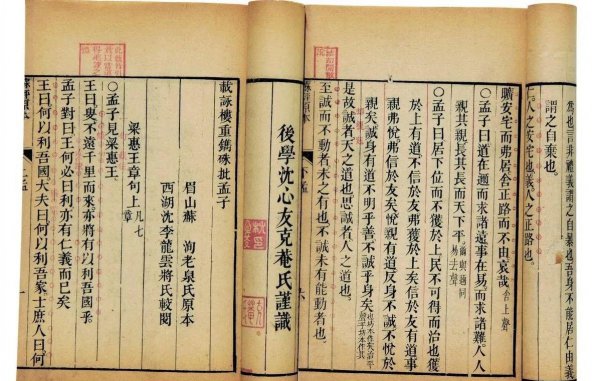 為也言非禮義謂之自暴也吾身不能居仁由義
謂之自棄也
仁人之安宅也義人之正路也
曠安宅而弗居舍正路而不由哀哉 舍上聲
○孟子曰道在邇而求諸遠事在易而求諸難人人
親其親長其長而天下平 易去聲
○孟子曰居下位而不獲於上民不可得而治也獲
於上有道不信於友弗獲於上矣信於友有道事
親弗悅弗信於友矣悅親有道反身不誠不悅於
親矣誠身有道不明乎善不誠乎身矣
是故誠者天之道也思誠者人之道也
至誠而不動者未之有也不誠未有能動者也
後學沈心友克菴氏謹識
載詠樓重鐫硃批孟子
眉山蘇 洵老泉氏原本
西湖沈李龍雲將氏較閱
梁惠王章句上 凡七章
○孟子見梁惠王
王曰叟不遠千里而來亦將有以利吾國乎
孟子對曰王何必曰利亦有仁義而已矣
王曰何以利吾國大夫曰何以利吾家士庶人曰何